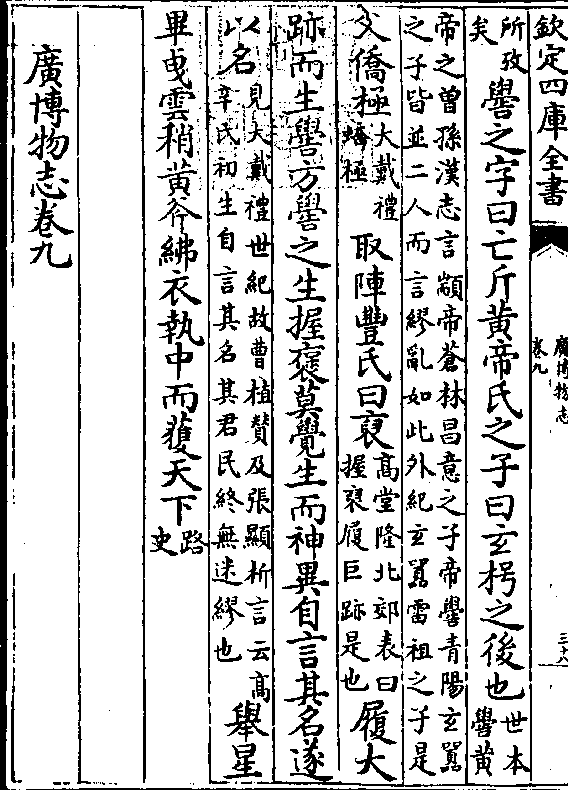 欽定四庫全書
廣博物志
卷九
三十八
所攷
矣
嚳之字曰亡斤黄帝氏之子曰玄枵之後也
世本
嚳黄
帝之曽孫漢志言顓帝蒼林昌意之子帝嚳青陽玄囂
之子皆並二人而言繆亂如此外紀玄囂雷祖之子是
父僑極
大戴禮
蟜極
取陣豐氏曰裒
髙堂隆北郊表曰
握裒履巨跡是也
履大
跡而生嚳方嚳之生握裒莫覺生而神異自言其名遂
以名
見大戴禮世紀故曹植賛及張顯析言云髙
辛氏初生自言其名其君民終無迷繆也
舉星
畢曵雲稍黄斧紼衣執中而䕶天下
路
史
廣博物志卷九